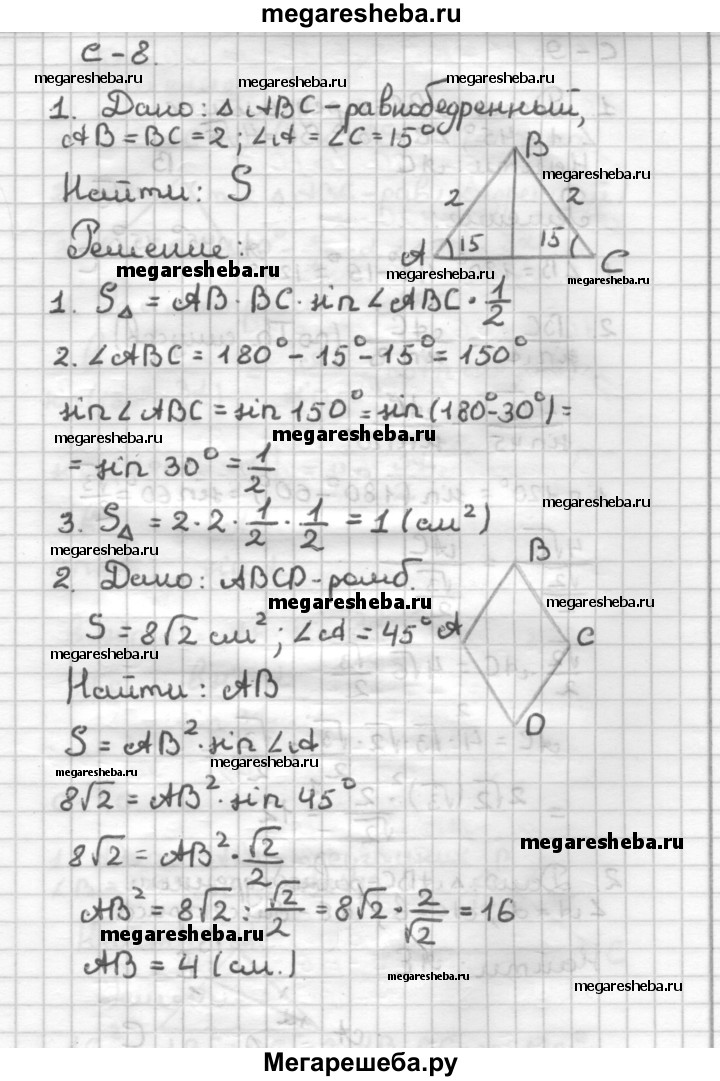 megaresheba.ru
с-8.
megaresheba.ru megaresheba.ru megaresheba.ru
1. Дано: Δ ABC - равнобедренный,
AB = BC = 2; ∠A = ∠C = 15°
B
megaresheba.ru
Найти: S
2 2
Решение:
A 15 15 C
megaresheba.ru megaresheba.ru megaresheba.ru
1. S△ = AB · BC · sin ∠ABC · 1/2
2. ∠ABC = 180° - 15° - 15° = 150°
sin ∠ABC = sin 150° = sin (180° - 30°) =
megaresheba.ru megaresheba.ru
= sin 30° = 1/2
megaresheba.ru
3. S△ = 2 · 2 · 1/2 · 1/2 = 1 (см²)
megaresheba.ru
B
2. Дано: ABCD - ромб.
megaresheba.ru megaresheba.ru
S = 8√2 см²; ∠A = 45°
A C
megaresheba.ru
Найти: AB
D
S = AB² · sin ∠A
megaresheba.ru megaresheba.ru
8√2 = AB² · sin 45°
megaresheba.ru
8√2 = AB² · √2/2
AB² = 8√2 : √2/2 = 8√2 · 2/√2 = 16
megaresheba.ru
AB = 4 (см.)
megaresheba.ru
megaresheba.ru
Мегарешеба.ру